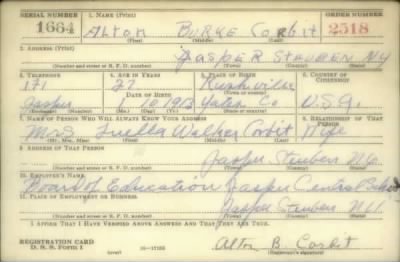 SERIAL NUMBER 1. NAME (Print) ORDER NUMBER
1664 Alton BURKE Corbit 2518
(First) (Middle) (Last)
2. ADDRESS (Print)
JASPER STEUBEN NY
(Number and street or R. F. D. number) (Town) (County) (State)
3. TELEPHONE 4. AGE IN YEARS 5. PLACE OF BIRTH 6. COUNTRY OF CITIZENSHIP
171 27 Rushville
DATE OF BIRTH
Jasper 10 1913 Yates Co U.S.A.
7. NAME OF PERSON WHO WILL ALWAYS KNOW YOUR ADDRESS 8. RELATIONSHIP OF THAT PERSON
Mrs Luella Walker Corbit Wife
(Mr., Mrs., Miss) (First) (Middle) (Last)
9. ADDRESS OF THAT PERSON
Jasper Steuben N.Y.
(Number and street or R. F. D. number) (Town) (County) (State)
10. EMPLOYER'S NAME
Board of Education Jasper Central School
11. PLACE OF EMPLOYMENT OR BUSINESS
Jasper Steuben N.Y.
(Number and street or R. F. D. number) (Town) (County) (State)
I AFFIRM THAT I HAVE VERIFIED ABOVE ANSWERS AND THAT THEY ARE TRUE.
REGISTRATION CARD
D. S. S. FORM 1 16-17105 Alton B. Corbit
(Registrant's signature)